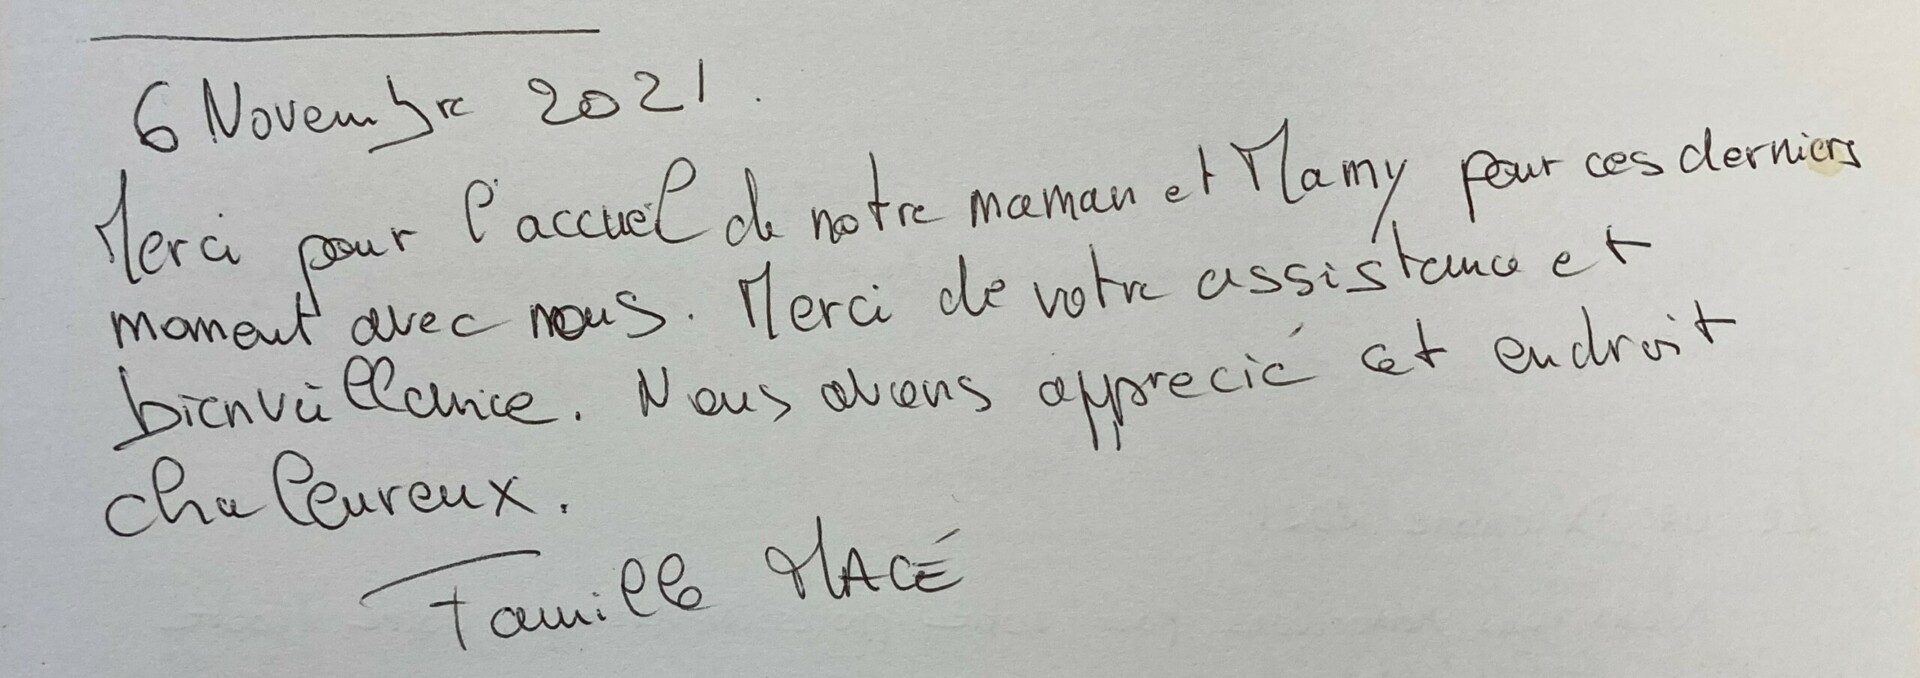 6 Novembre 2021.
Merci pour l'accueil de notre maman et Mamy pour ces derniers
moment avec nous. Merci de votre assistance et
bienveillance. Nous avons apprecié cet endroit
chaleureux.
Famille MACÉ